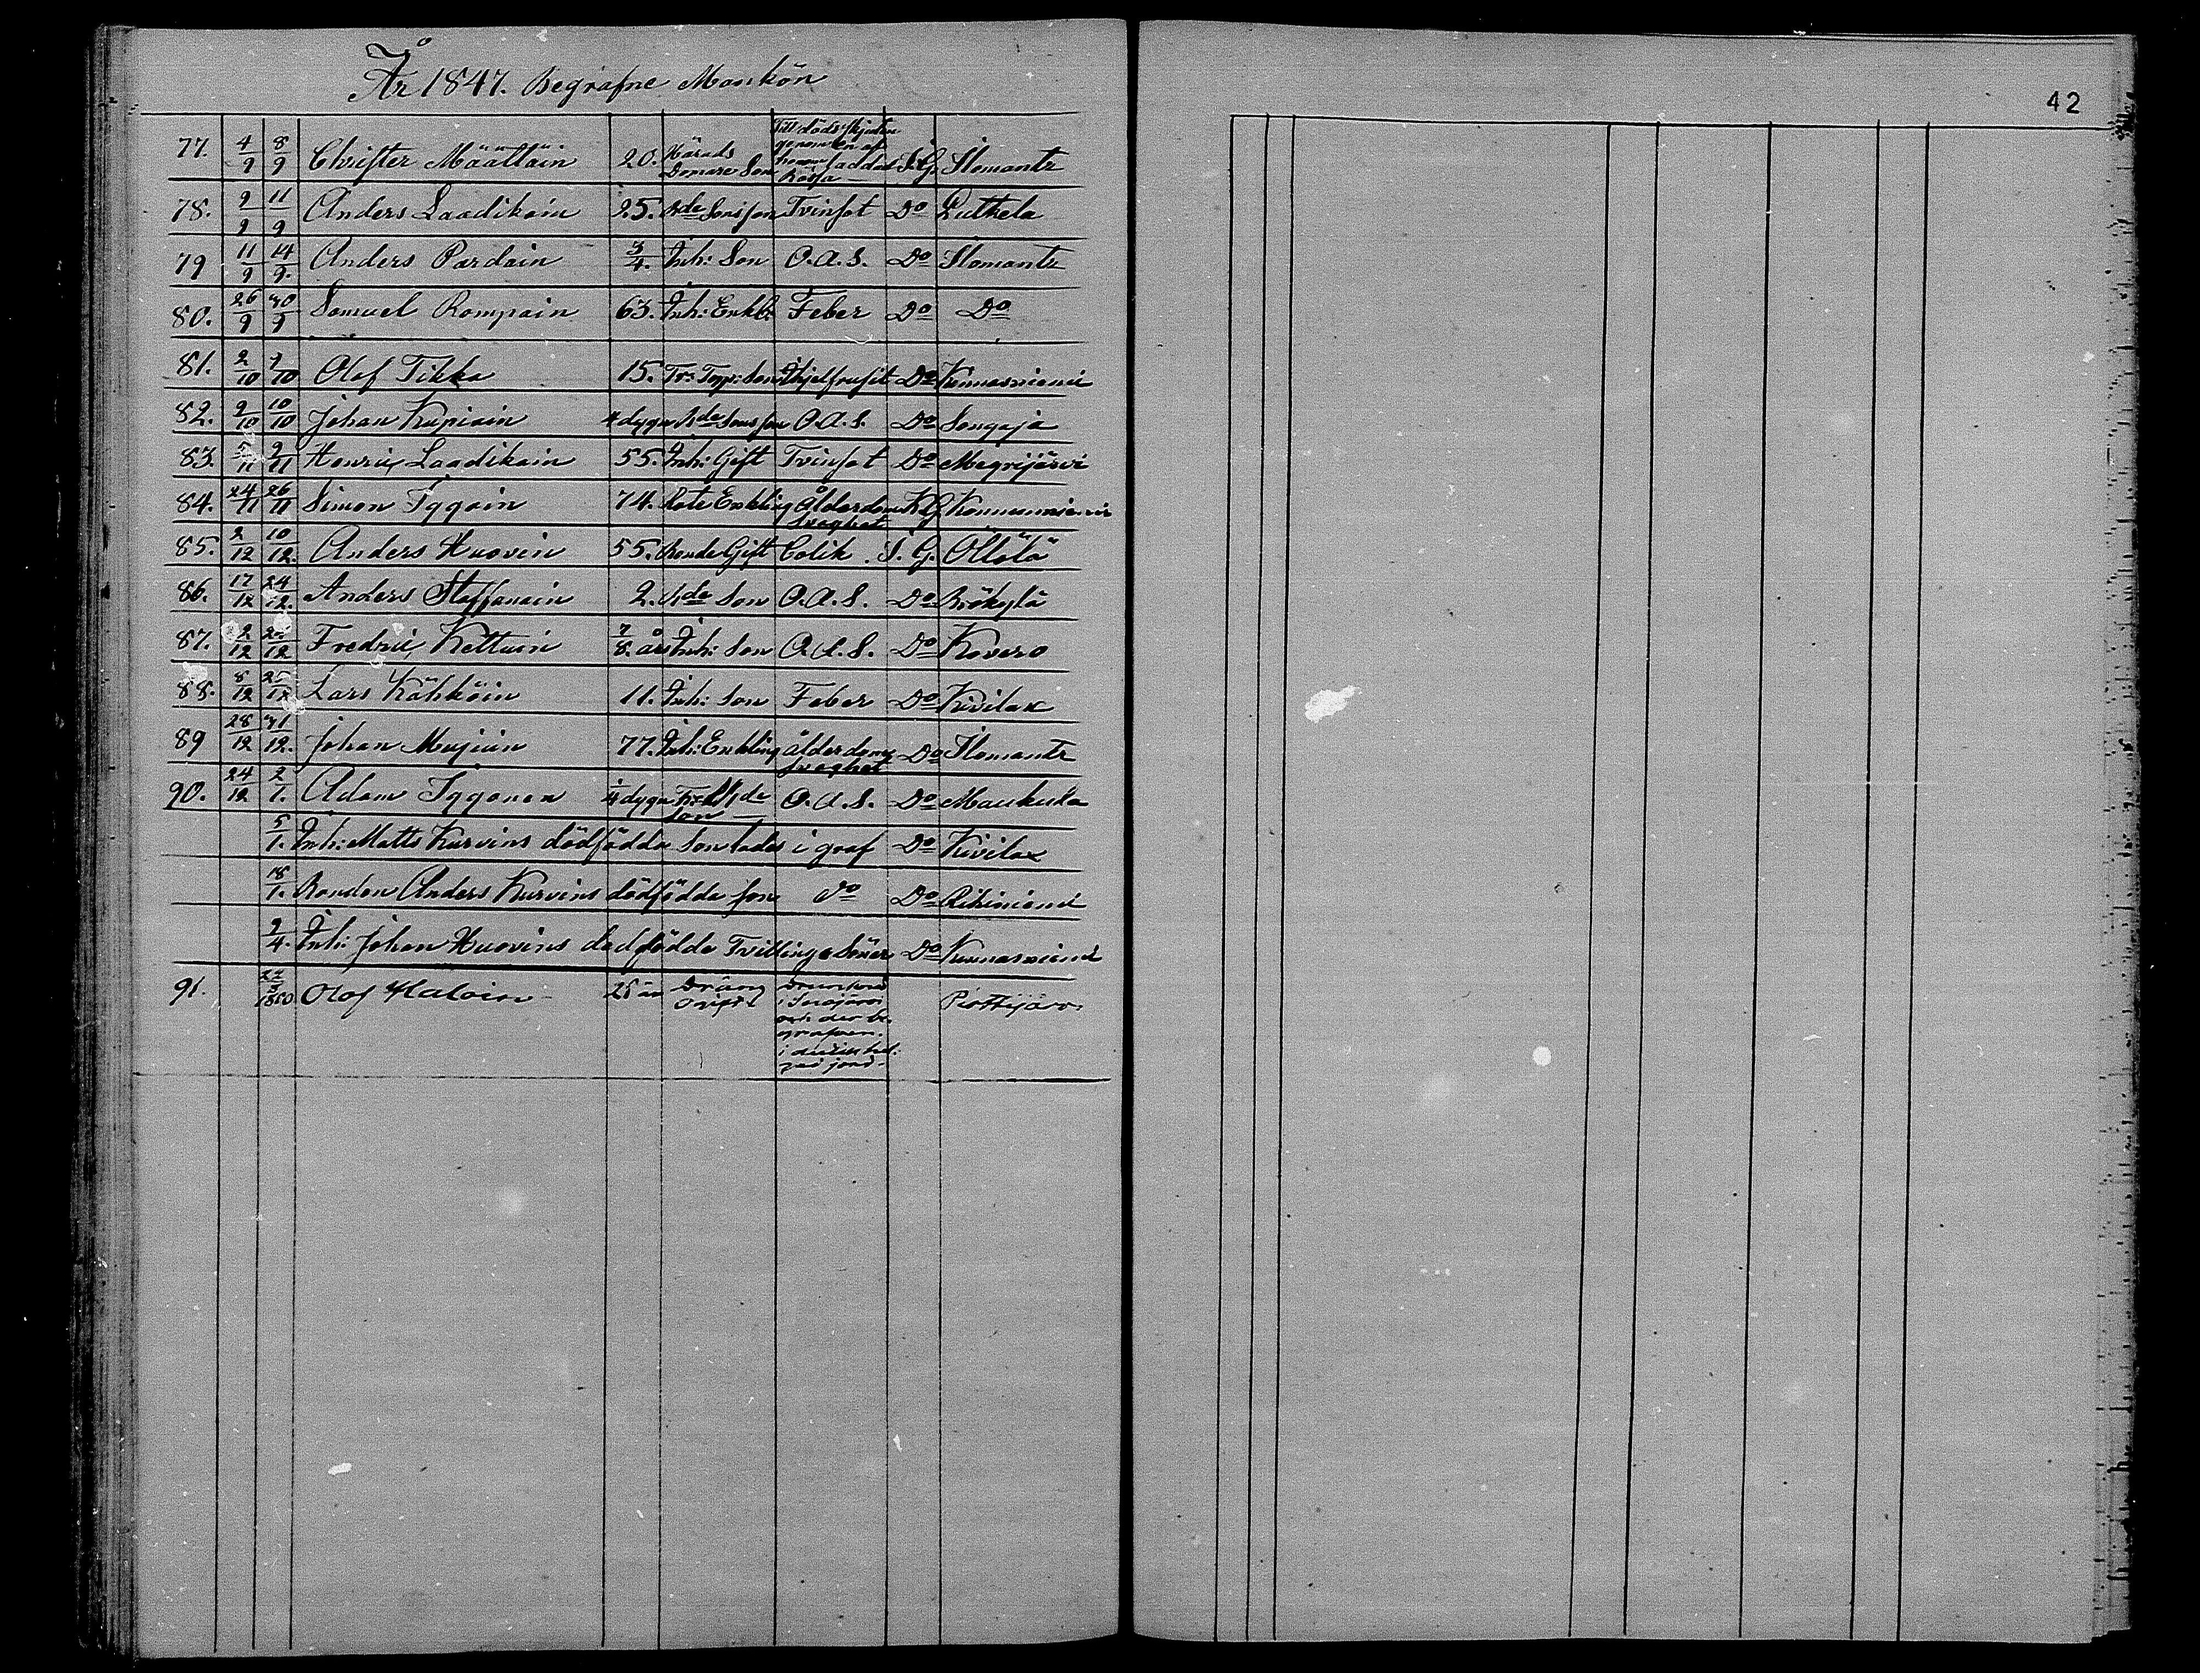 År 1847. Begrafne Mankön
42
77. 4/9 8/9 Christer Määttäin 20. Härads Domare Son Till döds skjuten genom en af honom laddad Bössa S. G. Ilomants
78. 9/9 11/9 Anders Laadikain 25. Bde Sons son Tvinsot Do Luthela
79 11/9 14/9. Anders Pardain 3/4. Inh: Son O.A.S. Do Ilomants
80. 26/9 30/9 Samuel Rompain 63. Inh: Enkl: Feber Do Do
81. 2/10 7/10 Olof Tikka 15. Tr: Torp: Son Do Konnasniemi
82. 9/10 10/10 Johan Kupiain 4 dygn Bde Sons son O.A.S. Do Sonqaja
83. 5/11 9/11 Henric Laadikain 55. Inh: Gift Tvinsot Do Megrijärvi
84. 24/11 26/11 Simon Iggoin 74. Rote Enkling Ålderdoms svaghet K G Konnunniemi
85. 2/12 10/12. Anders Huovin 55. Bonde Gift Colik. S. G. Ollölä
86. 17/12 24/12. Anders Staffanain 2. Bde Son O.A.S. Do Brökylä
87. 2/12 25/12 Fredric Kettuin 7/8 års Inh: Son O.A.S. Do Kovero
88. 8/12 25/12 Lars Kähköin 11. Inh: Son Feber Do Kivilax
89 28/12 31/12. Johan Mujuin 77. Inh: Enkling ålderdoms svaghet Do Ilomants
90. 24/12 2/1. Adam Iggonen 4 dygn Bde Son O.A.S. Do Maukula
5/1. Inh: Matts Kurvins dödfödda Son lades i graf Do Kivilax
18/1. Bonden Anders Kurvins dödfödda son do Do
9/4. Inh: Johan Huovins dödfödda Tvillinge Söner Do Konnasniemi
91. 1850 Olof Haloin 25 år Dräng ogift Drunknad i och der begrafven. vid jord. Piottijärvi